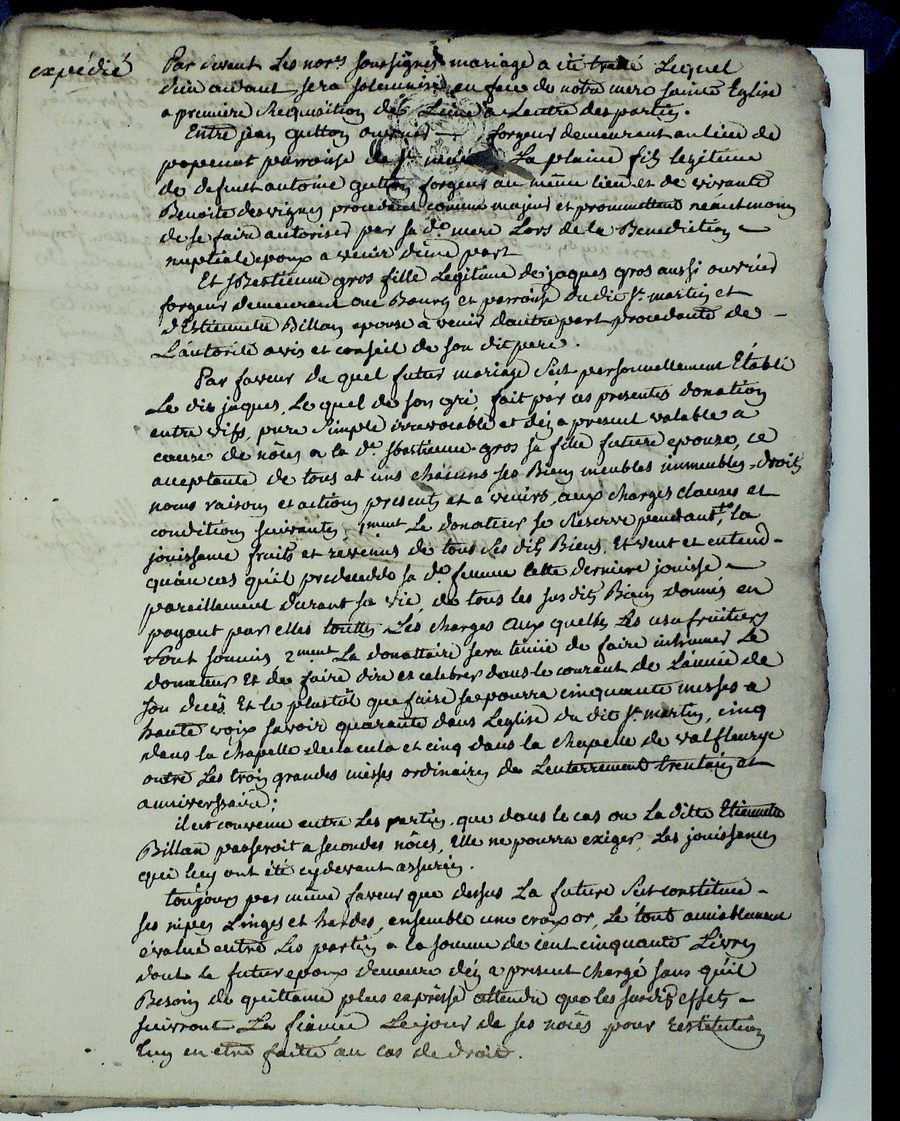 expédié
Par devant Les no.rs soussignés mariage a été traité Lequel
dieu aidant sera solemnisé en face de notre mere sainte Eglise
a premiere Requisition de L'une a Lautre des parties.
Entre jean gutton ouvrier forgeur demeurant au lieu de
parroisse de st La plaine fils legitime
de defunt antoine gutton forgeur au même lieu et de vivante
Benoite desvignes procedant comme majeur et promettant néantmoins
de se faire autoriser par sa de. mere Lors de la Benediction
nuptiale epoux a venir d'une part
Et sbastienne gros fille Legitime de jaques gros aussi ouvrier
forgeur demeurant au Bourg et parroisse du dit st. martin et
d'Estiennette Billon epouse a venir d'autre part procedante de
L'autorité avis et conseil de son dit pere.
Par faveur du quel futur mariage s'est personnellement Etabli
Le dit jaques, Le quel de son gré fait par ces presentes donation
entre vifs, pure simple irrevocable et deja present valable a
cause de nôces a la de. sbastienne gros sa fille future epouse, ce
acceptante de tous et uns chacuns ses Biens meubles immeubles, droits
noms raisons et actions presents et a venirs, aux charges clauses et
conditions suivantes, 1.ment Le donateur se Reserve pendant la
jouissance fruits et revenus de tous ses dits Biens, Et veut et entend
qu'au cas qu'il predecede sa de. femme cette derniere jouisse
pareillement durant sa vie, de tous les susdits Biens donnés en
payant par elles touttes Les charges aux quelles Les usufruitiers
sont soumis, 2.ment La donattaire sera tenüe de faire inhumer Le
donateur Et de faire dire et celebrer dans le courant de L'année de
son decès Et le plustôt que faire se pourra cinquante messes a
haute voix savoir quarante dans L'eglise du dit st. martin, cinq
dans la chapelle de la cula et cinq dans la chapelle de valfleurye
outre Les trois grandes messes ordinaires de Lenterrement trentain et
anniversaire;
il est convenu entre Les parties que dans le cas ou La ditte Etiennette
Billan passeroit a secondes nôces, Elle ne pourra exiger Les jouissances
qui luy ont été cydevant assurées.
toujours par même faveur que dessus La future s'est constituée
ses nipes Linges et hardes, ensemble une croix or, Le tout amiablement
évalué entre Les parties a la somme de cent cinquante Livres
dont Le futur epoux demeure déja present chargé sans qu'il
Besoin de quittance plus expresse attendu que les susdits effets
suivront La fiancée Le jour de ses nôces pour restitution
Luy en etre faitte au cas de droit.